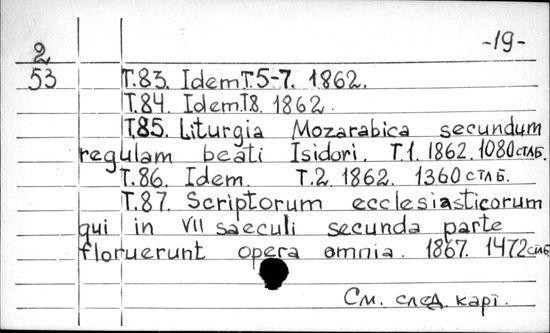 -19-
2
53 T.83. Idem T.5-7. 1862.
T.84. Idem. T8. 1862.
T.85. Liturgia Mozarabica secundum
regulam beati Isidori. T.1. 1862. 1080 стлб.
T.86. Idem. T.2. 1862. 1360 стлб.
T.87. Scriptorum ecclesiasticorum
qui in VII saeculi secunda parte
floruerunt opera omnia. 1867. 1472 стлб
См. след. карт.